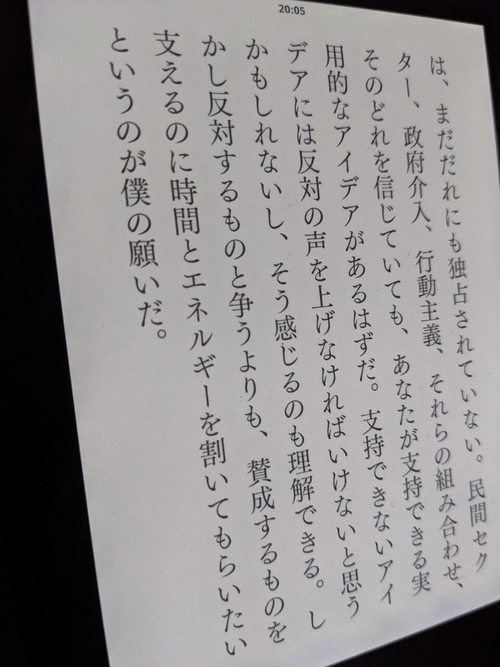 20:05
は、まだだれにも独占されていない。民間セク
ター、政府介入、行動主義、それらの組み合わせ、
そのどれを信じていても、あなたが支持できる実
用的なアイデアがあるはずだ。支持できないアイ
デアには反対の声を上げなければいけないと思う
かもしれないし、そう感じるのも理解できる。し
かし反対するものと争うよりも、賛成するものを
支えるのに時間とエネルギーを割いてもらいたい
というのが僕の願いだ。